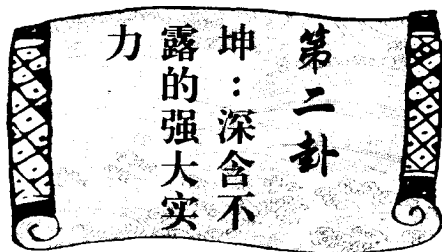 第二卦
坤:深含不
露的强大实
力